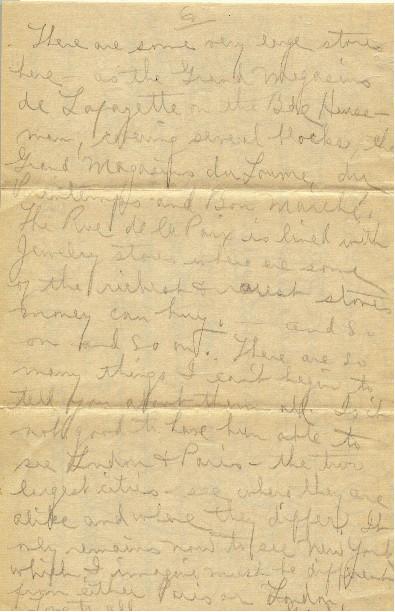 6
There are some very large stores
here - as the Grand Magasins
de Lafayette on the Bde Hauss-
man, covering several blocks, the
Grand Magasins du Louvre, du
Printemps and Bon Marché.
The Rue de la Paix is lined with
Jewelry stores where are some
of the richest & rarest stones
money can buy. - and so
on and so on. There are so
many things I can't begin to
tell you about them all. Is it
not good to have been able to
see London & Paris - the two
largest cities - see where they are
alike and where they differ. It
only remains now to see New York
which I imagine must be different
from either Paris or London
Love to all